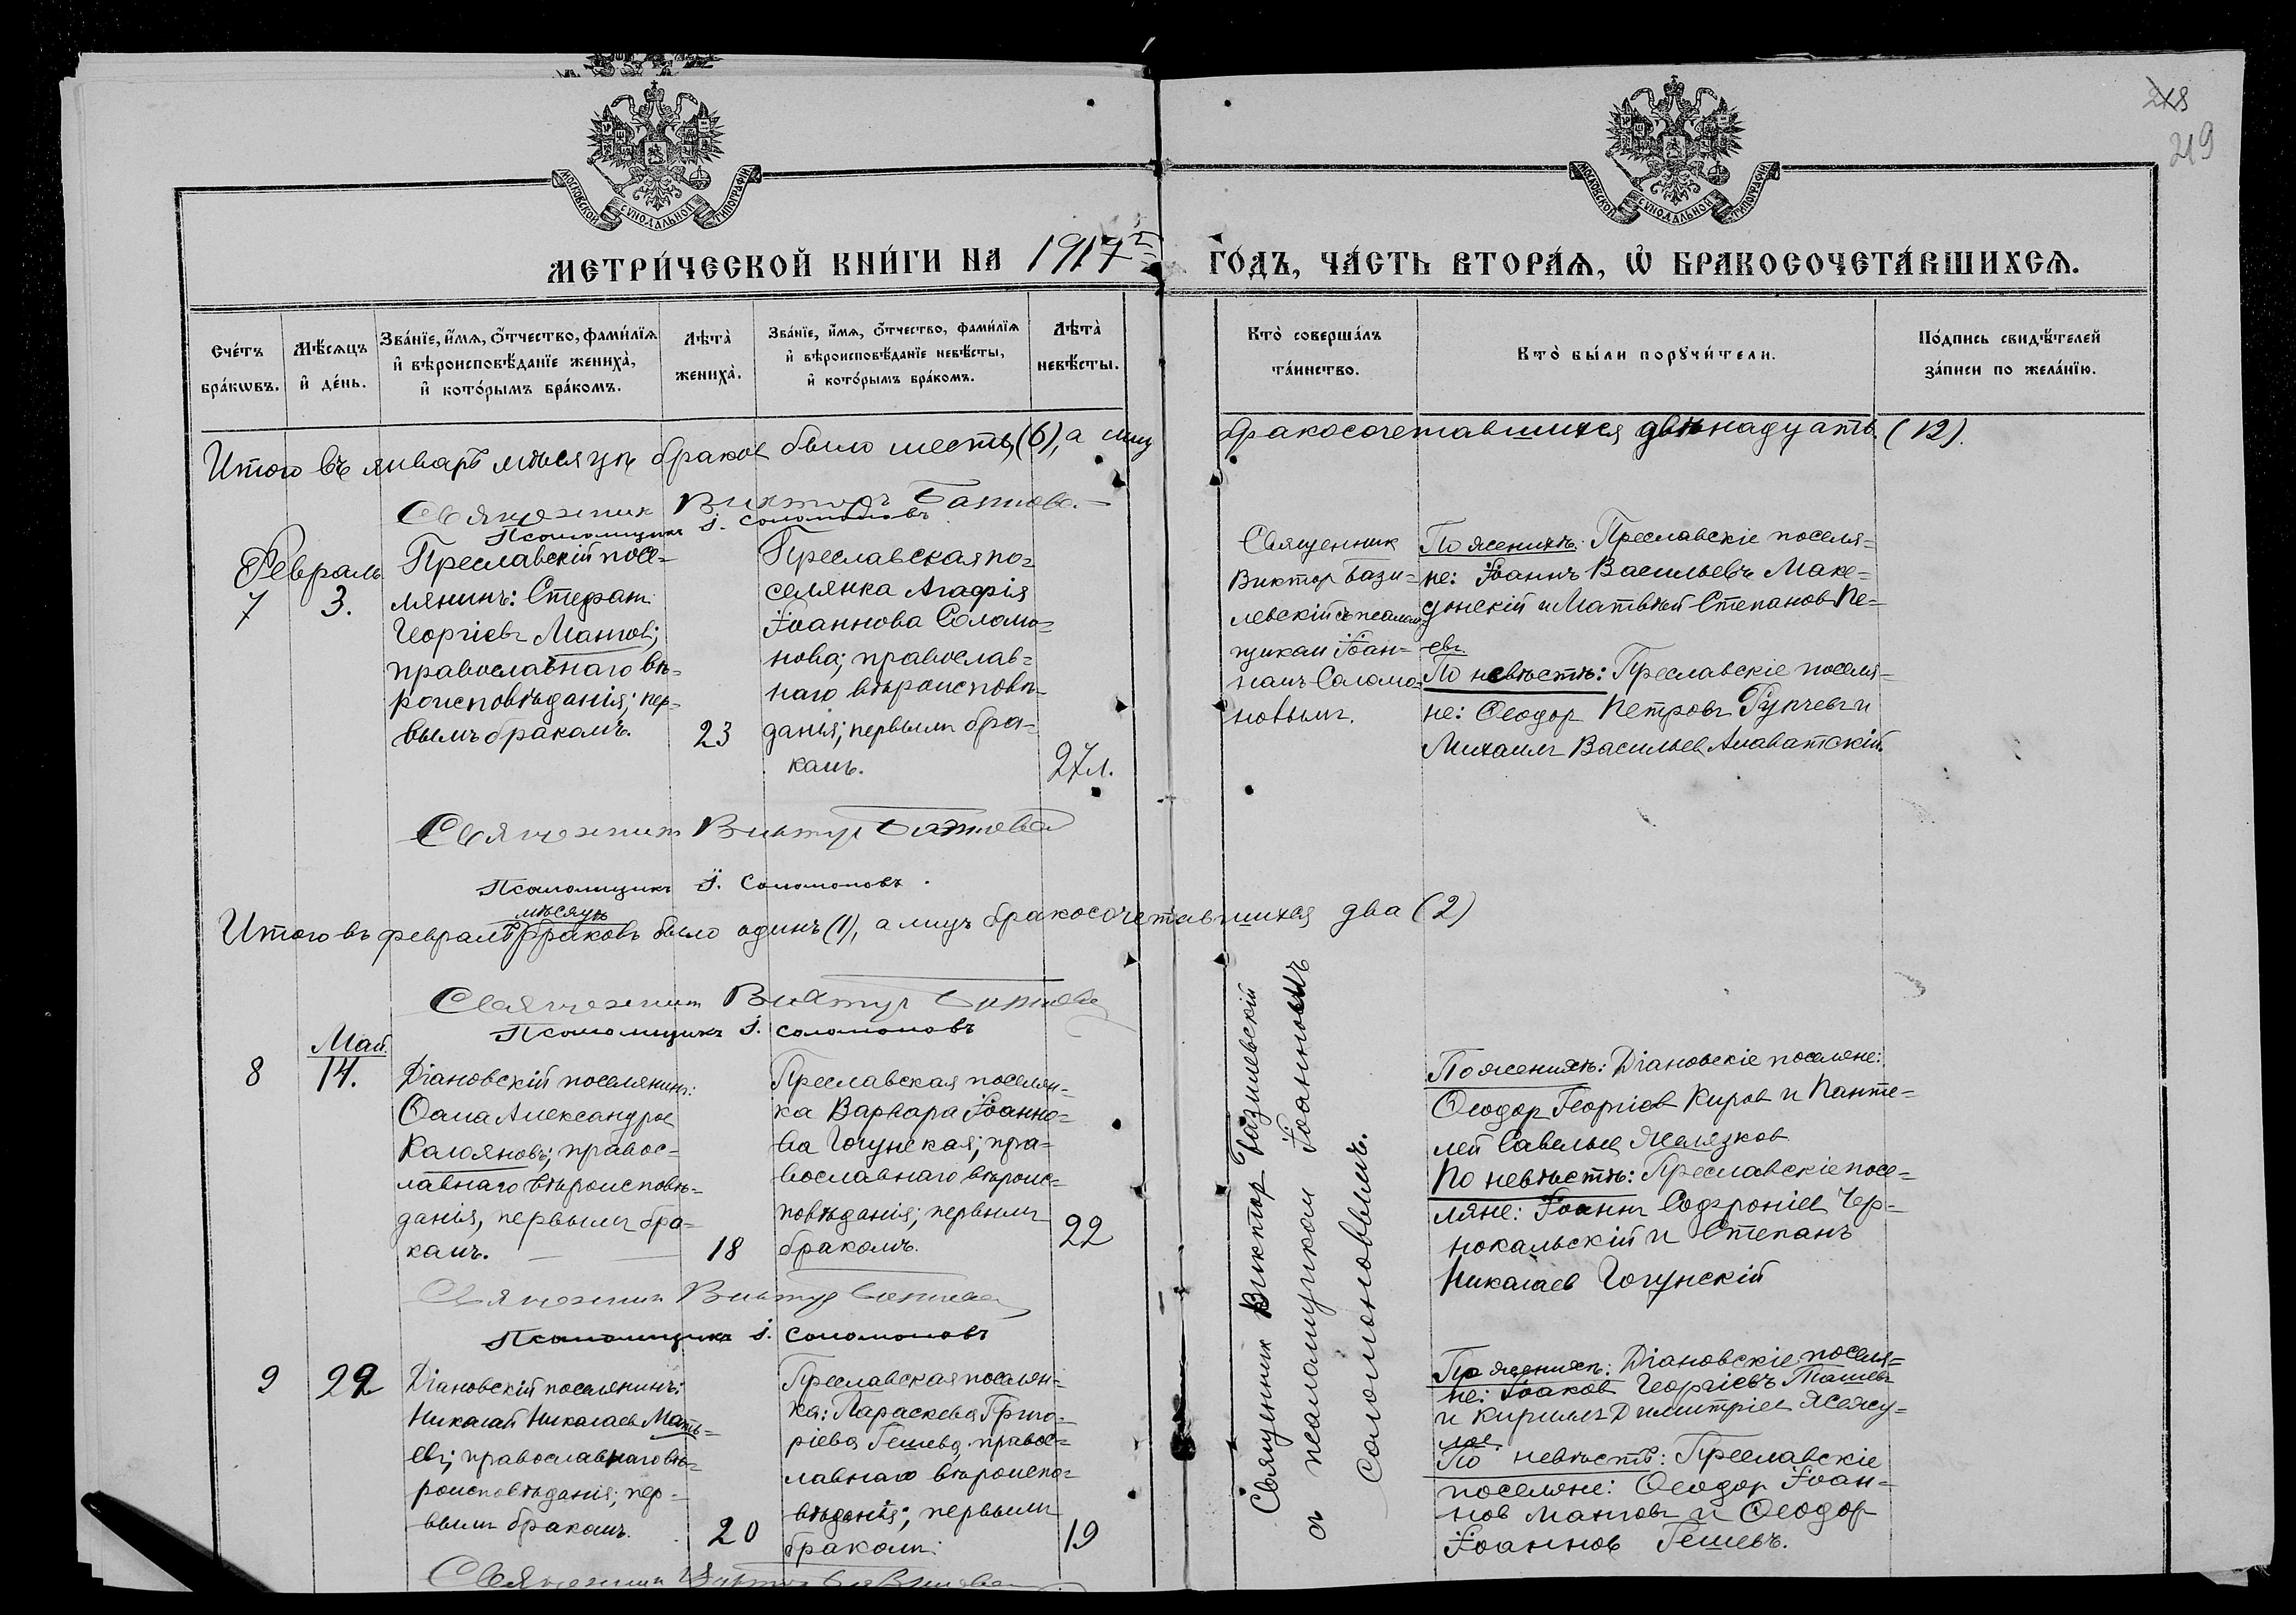 218
219
МОСКОВСКОЙ СѴНОДАЛЬНОЙ ТИПОГРАФІИ
МОСКОВСКОЙ СѴНОДАЛЬНОЙ ТИПОГРАФІИ
МЕТРИ́ЧЕСКОЙ КНИ́ГИ НА 1917
ГО́ДЪ, ЧА́СТЬ ВТОРА́Ѧ, Ѡ҆ БРАКОСОЧЕТА́ВШИХСѦ.
Сче́тъ бра́кѡвъ.
Мѣ́сѧцъ и҆ де́нь.
Зва́нїе, и҆́мѧ, ѻ҆́тчество, фами́лїѧ и҆ вѣроисповѣ́данїе жениха̀, и҆ кото́рымъ бра́комъ.
Лѣта̀ жениха̀.
Зва́нїе, и҆́мѧ, ѻ҆́тчество, фами́лїѧ и҆ вѣроисповѣ́данїе невѣ́сты, и҆ кото́рымъ бра́комъ.
Лѣта̀ невѣ́сты.
Кто̀ соверша́лъ та́инство.
Кто̀ бы́ли порꙋчи́тели.
По́дпись свидѣ́телей за́писи по жела́нїю.
Итого въ январѣ мѣсяцѣ браков было шесть (6), а лиц бракосочетавшихся двѣнадцать (12).
Священник Виктор
Псаломщикъ І. Соломоновъ
Февраль
7
3.
Преславскій посе-
лянинъ: Стефан
Георгіевъ Мангов;
православнаго вѣ-
роисповѣданія; пер-
вымъ бракомъ.
23
Преславская по-
селянка Агафія
Іоаннова Соломо-
нова; православ-
наго вѣроисповѣ-
данія; первымъ бра-
комъ.
27 л.
Священник
Виктор Бази-
левскій съ псалом-
щиком Іоан-
номъ Соломо-
новымъ.
По женихѣ: Преславскіе поселя-
не: Іоаннъ Васильевъ Маке-
донскій и Матвѣй Степанов Пе-
евъ.
По невѣстѣ: Преславскіе поселя-
не: Ѳеодор Петровъ Гупчевъ и
Михаилъ Васильев Алаватскій.
Священник Виктор
Псаломщикъ І. Соломоновъ.
мѣсяцѣ
Итого въ февралѣ браковъ было одинъ (1), а лицъ бракосочетавшихся два (2)
Священник Виктор
Псаломщикъ І. Соломоновъ
Май.
8
14.
Діановскій поселянинъ:
Ѳома Александров
Калояновъ; правос-
лавнаго вѣроисповѣ-
данія, первымъ бра-
комъ.
18
Преславская поселян-
ка Варвара Іоанно-
ва Гогунская; пра-
вославнаго вѣроис-
повѣданія; первымъ
бракомъ.
22
Священник Виктор Базилевскій
с псаломщиком Іоанномъ
Соломоновымъ.
По женихѣ: Діановскіе поселяне:
Ѳеодор Георгіев Киров и Панте-
лей Савельев Желязков
По невѣстѣ: Преславскіе посе-
ляне: Іоаннъ Софроніев Чер-
нокальскій и Степанъ
Николаев Гогунскій
Священник Виктор
Псаломщикъ І. Соломоновъ
9
22
Діановскій поселянинъ:
Николай Николаев Матѣ-
евъ; православнаго вѣ-
роисповѣданія; пер-
вымъ бракомъ.
20
Преславская поселян-
ка: Параскева Григо-
ріева Гешева, правос-
лавнаго вѣроиспо-
вѣданія; первымъ
бракомъ.
19
По женихѣ: Діановскіе поселя-
не: Іоаков Георгіевъ Ташевъ
и Кириллъ Димитріев
По невѣстѣ: Преславскіе
поселяне: Ѳеодор Іоан-
нов Манговъ и Ѳеодор
Іоаннов Гешевъ.
Священник